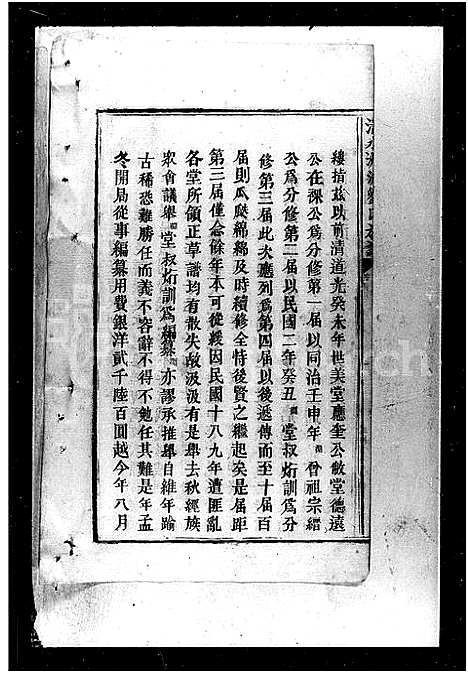 縷指茲以前清道光癸未年世美堂應奎公敘堂德遠
公在深公爲分修第一屆以同治壬申年曾祖宗縉
公爲分修第二屆以民國二年癸丑堂叔炘訓爲分
修第三屆此次應列爲第四屆以後遞傳而至十屆百
屆則瓜瓞綿綿及時續修全恃後賢之繼起矣是屆距
第三屆僅念餘年本可從緩因民國十八九年遭匪亂
各堂所領正草譜均有散失故汲汲有是舉去秋經族
眾會議舉堂叔炘訓爲編纂亦謬承推舉自維年踰
古稀恐難勝任而義不容辭不得不勉任其難是年孟
冬開局從事編纂用費銀洋貳千陸百圓越今年八月